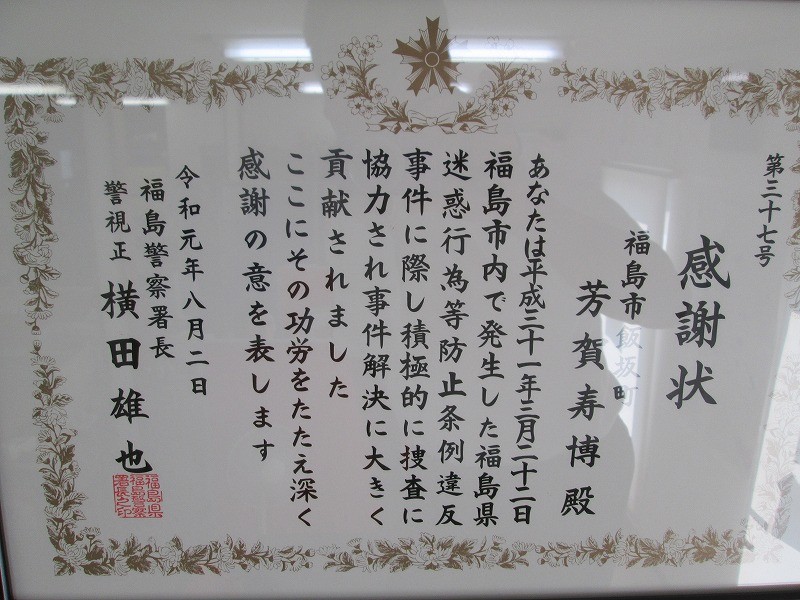 第三十七号
感謝状
福島市飯坂町
芳賀寿博殿
あなたは平成三十一年三月二十二日
福島市内で発生した福島県
迷惑行為等防止条例違反
事件に際し積極的に捜査に
協力され事件解決に大きく
貢献されました
ここにその功労をたたえ深く
感謝の意を表します
令和元年八月二日
福島警察署長
警視正 横田雄也